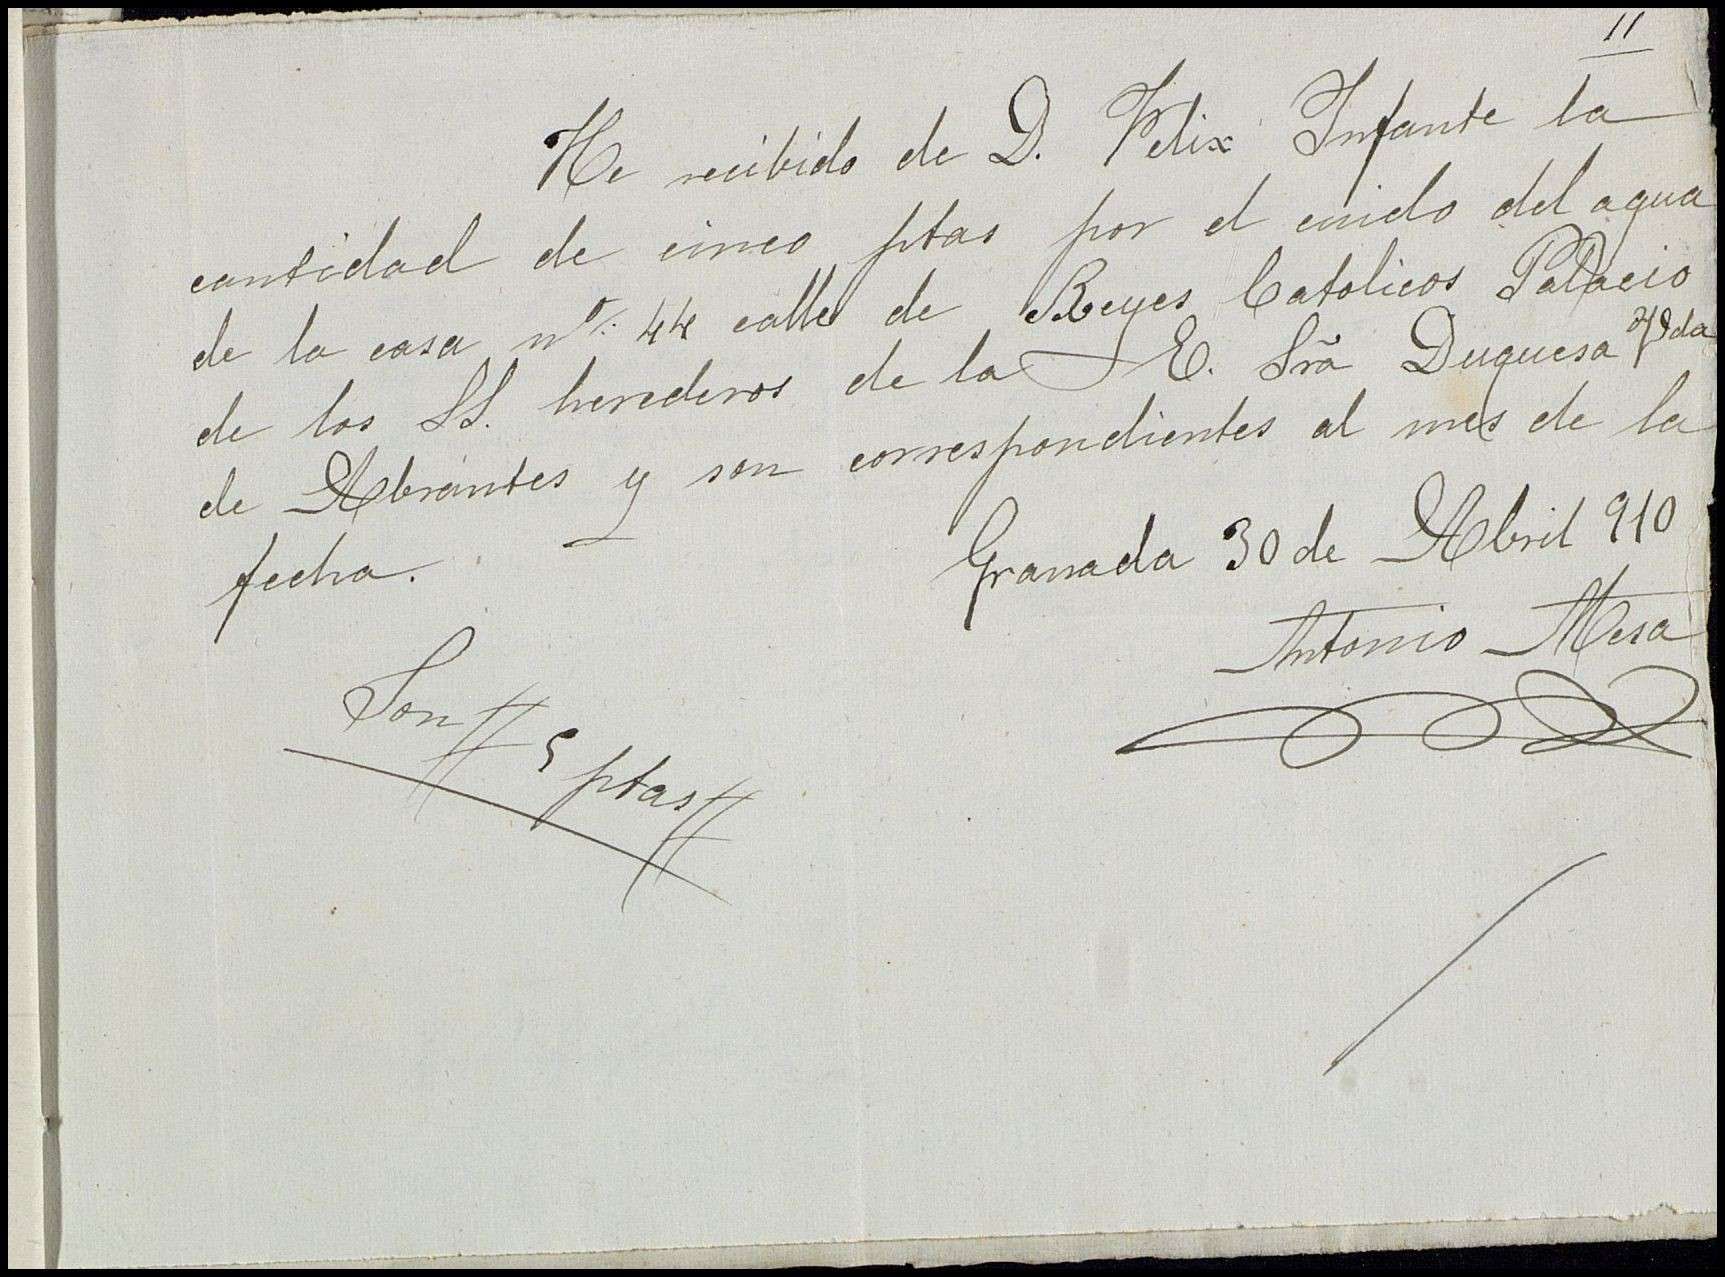 11
He recibido de D. Felix Infante la
cantidad de cinco ptas por el cuido del agua
de la casa nº 44 calle de Reyes Catolicos Palacio
de los SS. herederos de la E. Sra Duquesa
de Abrantes y son correspondientes al mes de la
fecha.
Granada 30 de Abril 910
Antonio Mesa
Son // 5 ptas //